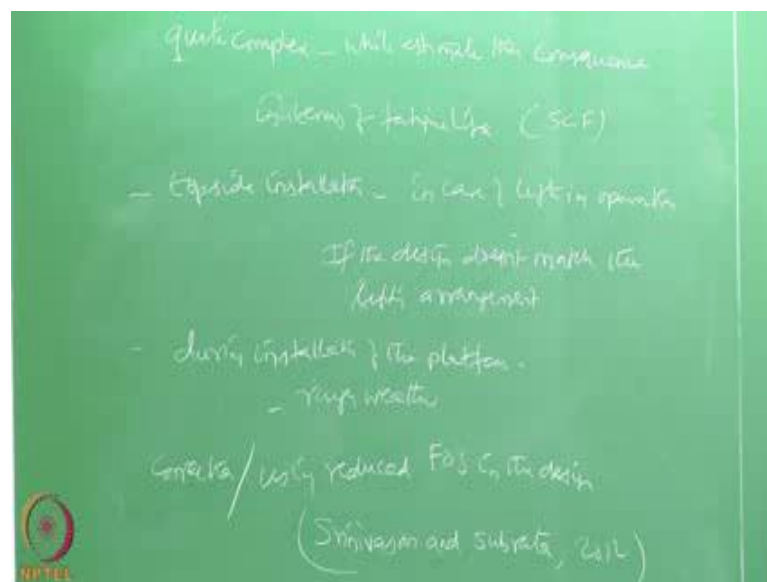 quite complex - while estimate the consequence
in terms of fatigue life (SCF)
- topside installation - in case of lift in operation
If the design doesn't match the
lifting arrangement
- during installation of the platform.
- rough weather
/ using reduced FOS in the design
(Srinivasan and Subrata, 2012)
NPTEL